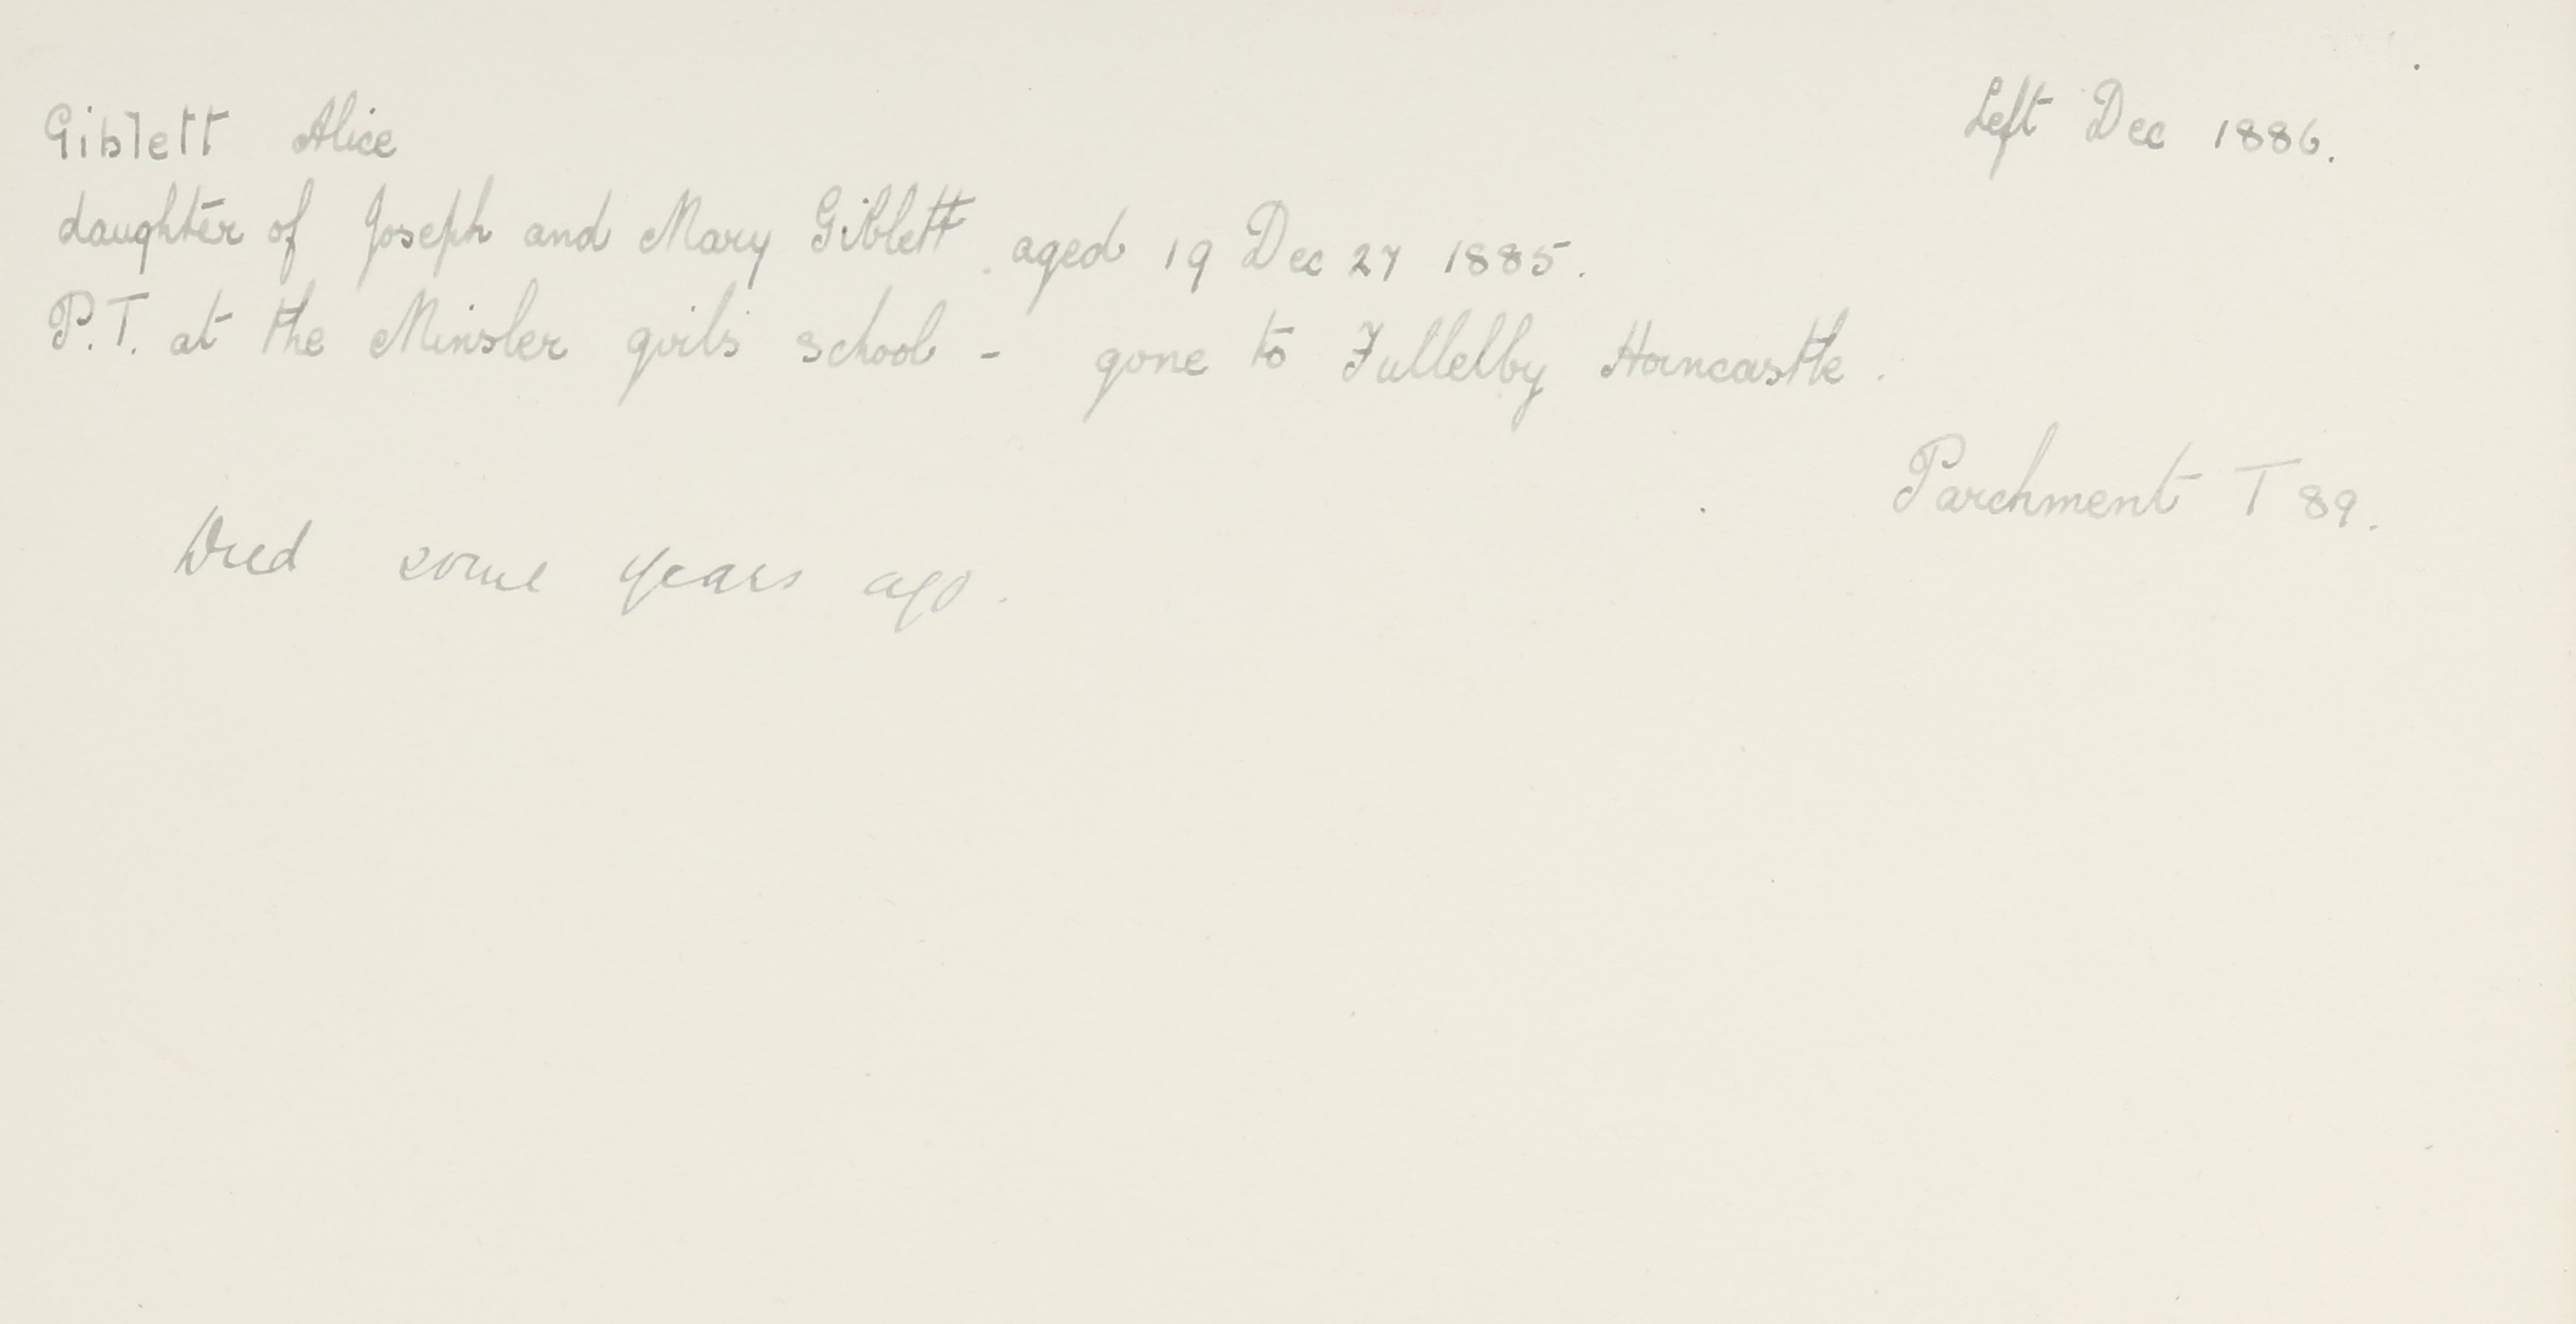 Giblett Alice
Left Dec 1886.
daughter of Joseph and Mary Giblett aged 19 Dec 27 1885.
P.T. at the Minster girls school - gone to Fullelby Horncastle.
Parchment T 89.
Died some years ago.